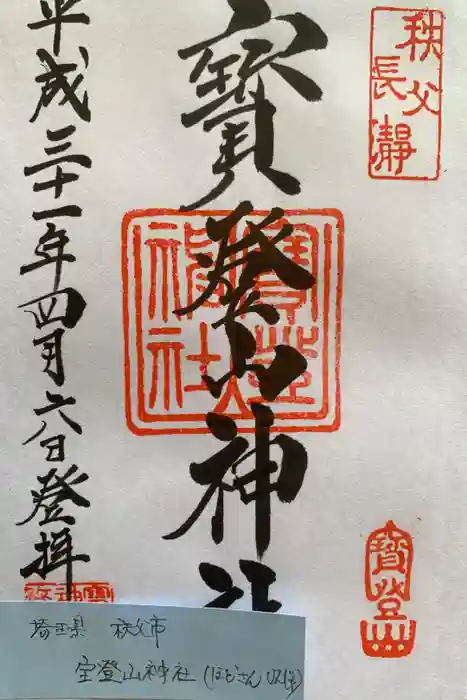 秩父
長瀞
寶登山神社
平成三十一年四月六日登拝
寶登山
神社
寶登山
埼玉県 秩父市
宝登山神社(ほどさん